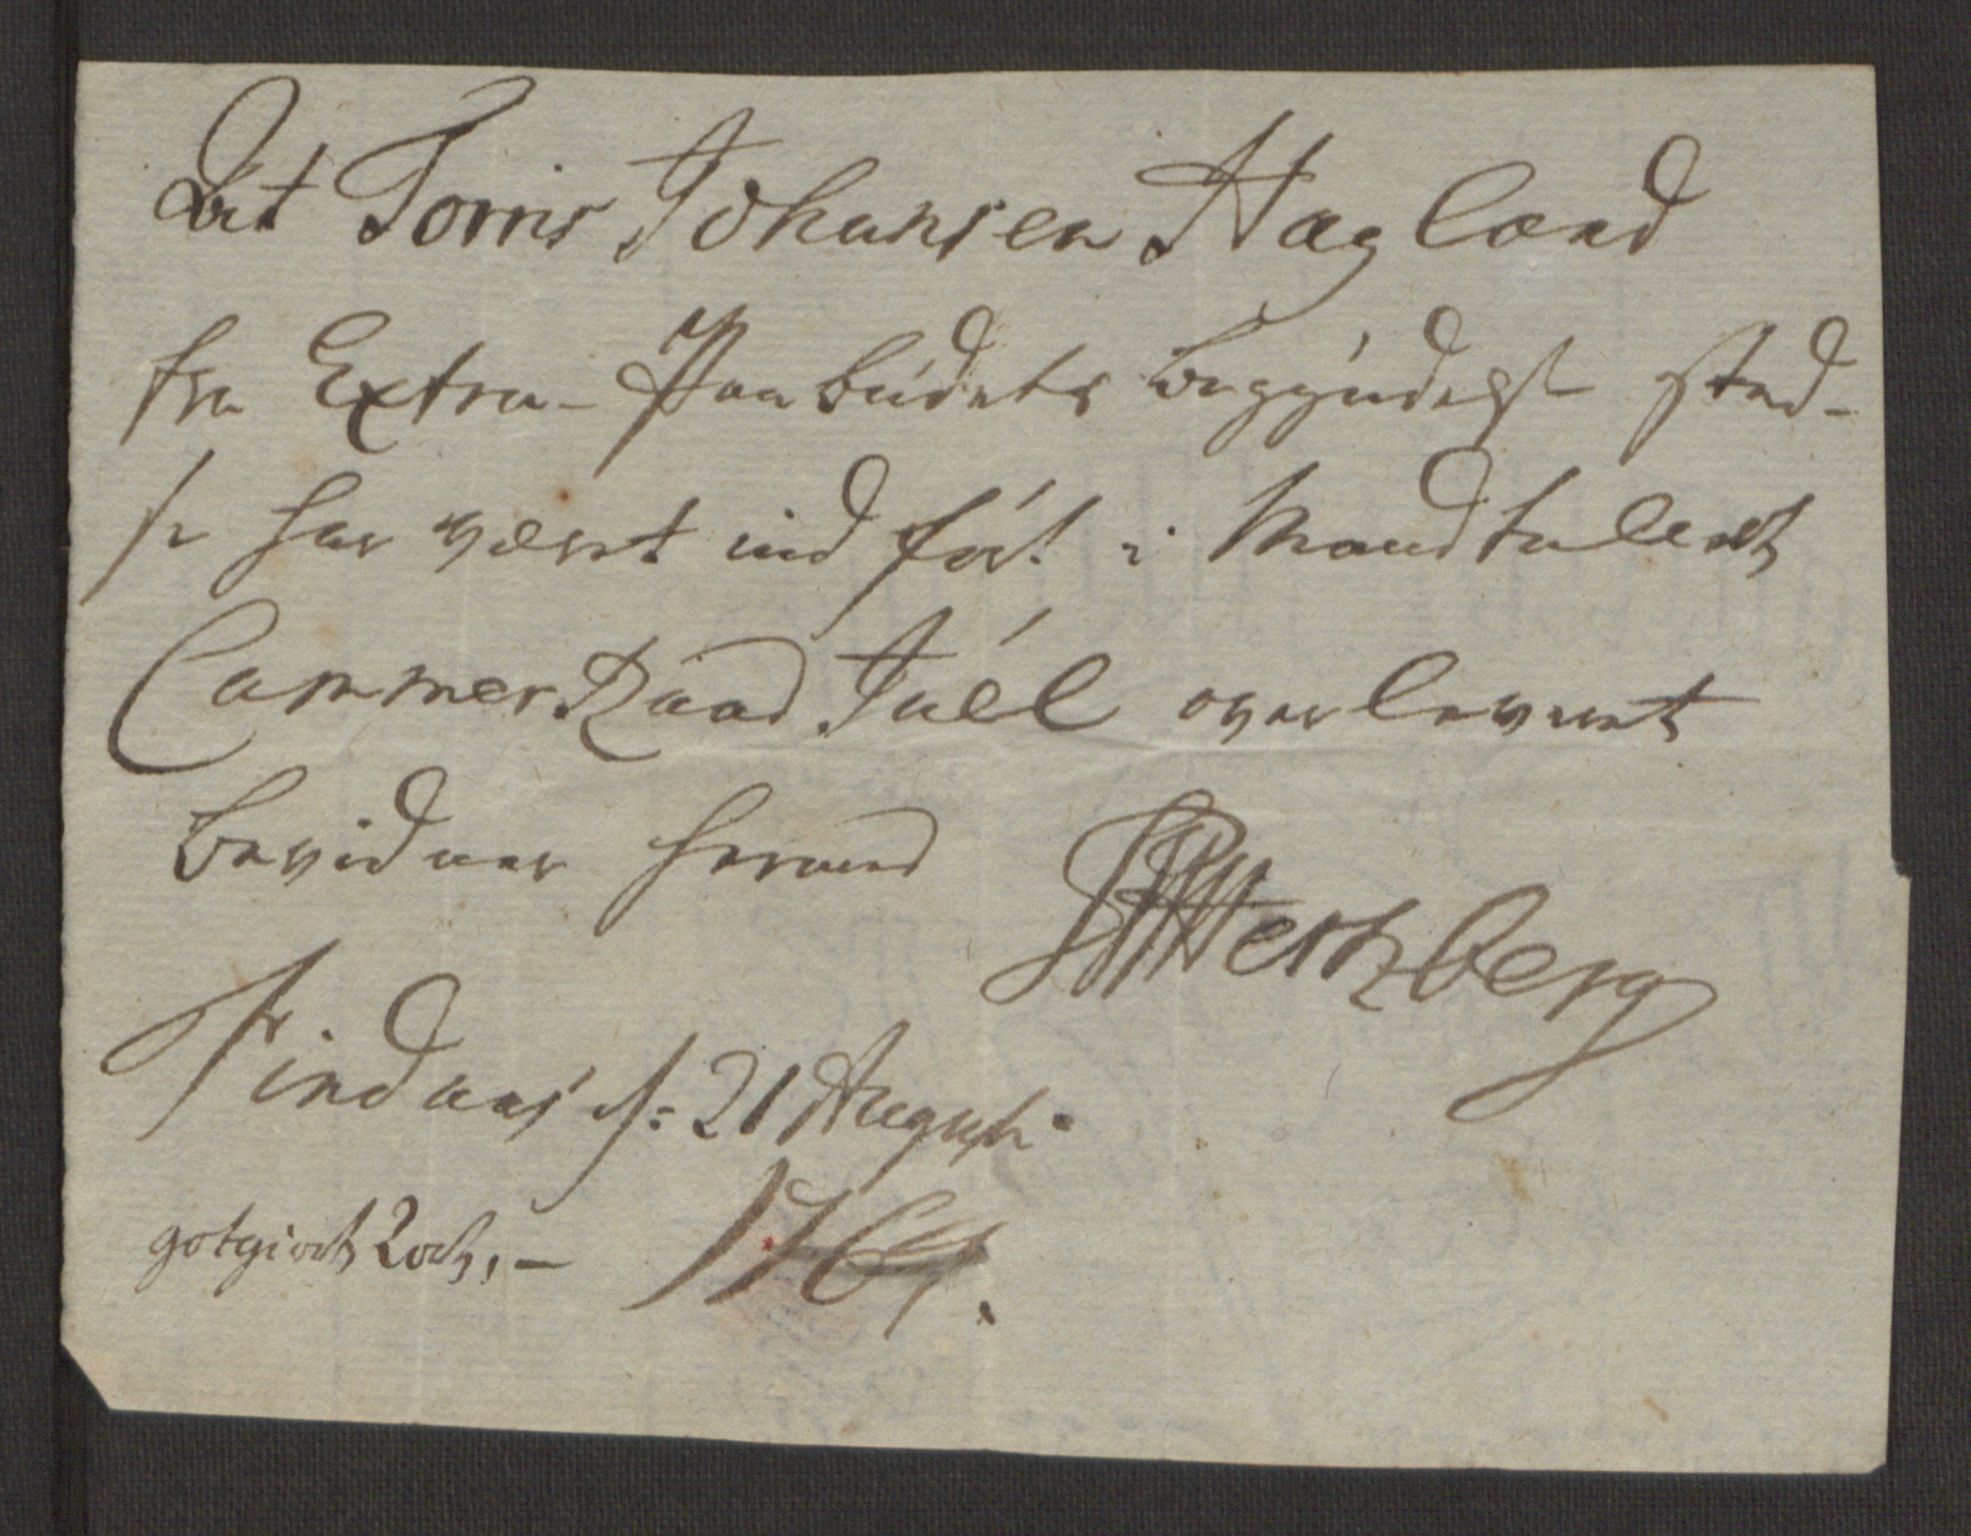 At Torris Johansen Hagland
fra Extra-Paabudets Begyndelse sted-
se har været ind ført i Mandtallet
Cammer Raad Juel overleveret
bevidner hermed
Hertzberg
Findaas d: 21 August
1764.
gotgiort